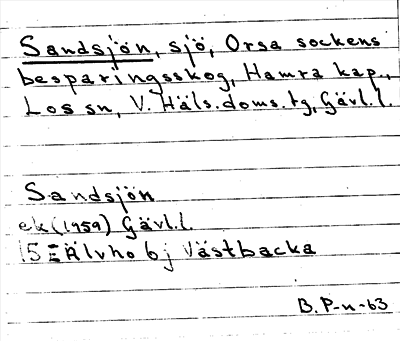 Sandsjön, sjö, Orsa sockens
besparingsskog, Hamra kap.,
Los sn, V. Häls. doms. tg, Gävl. l.
Sandsjön
ek (1959) Gävl. l.
15E Älvho 6j Västbacka
B. P-n-63